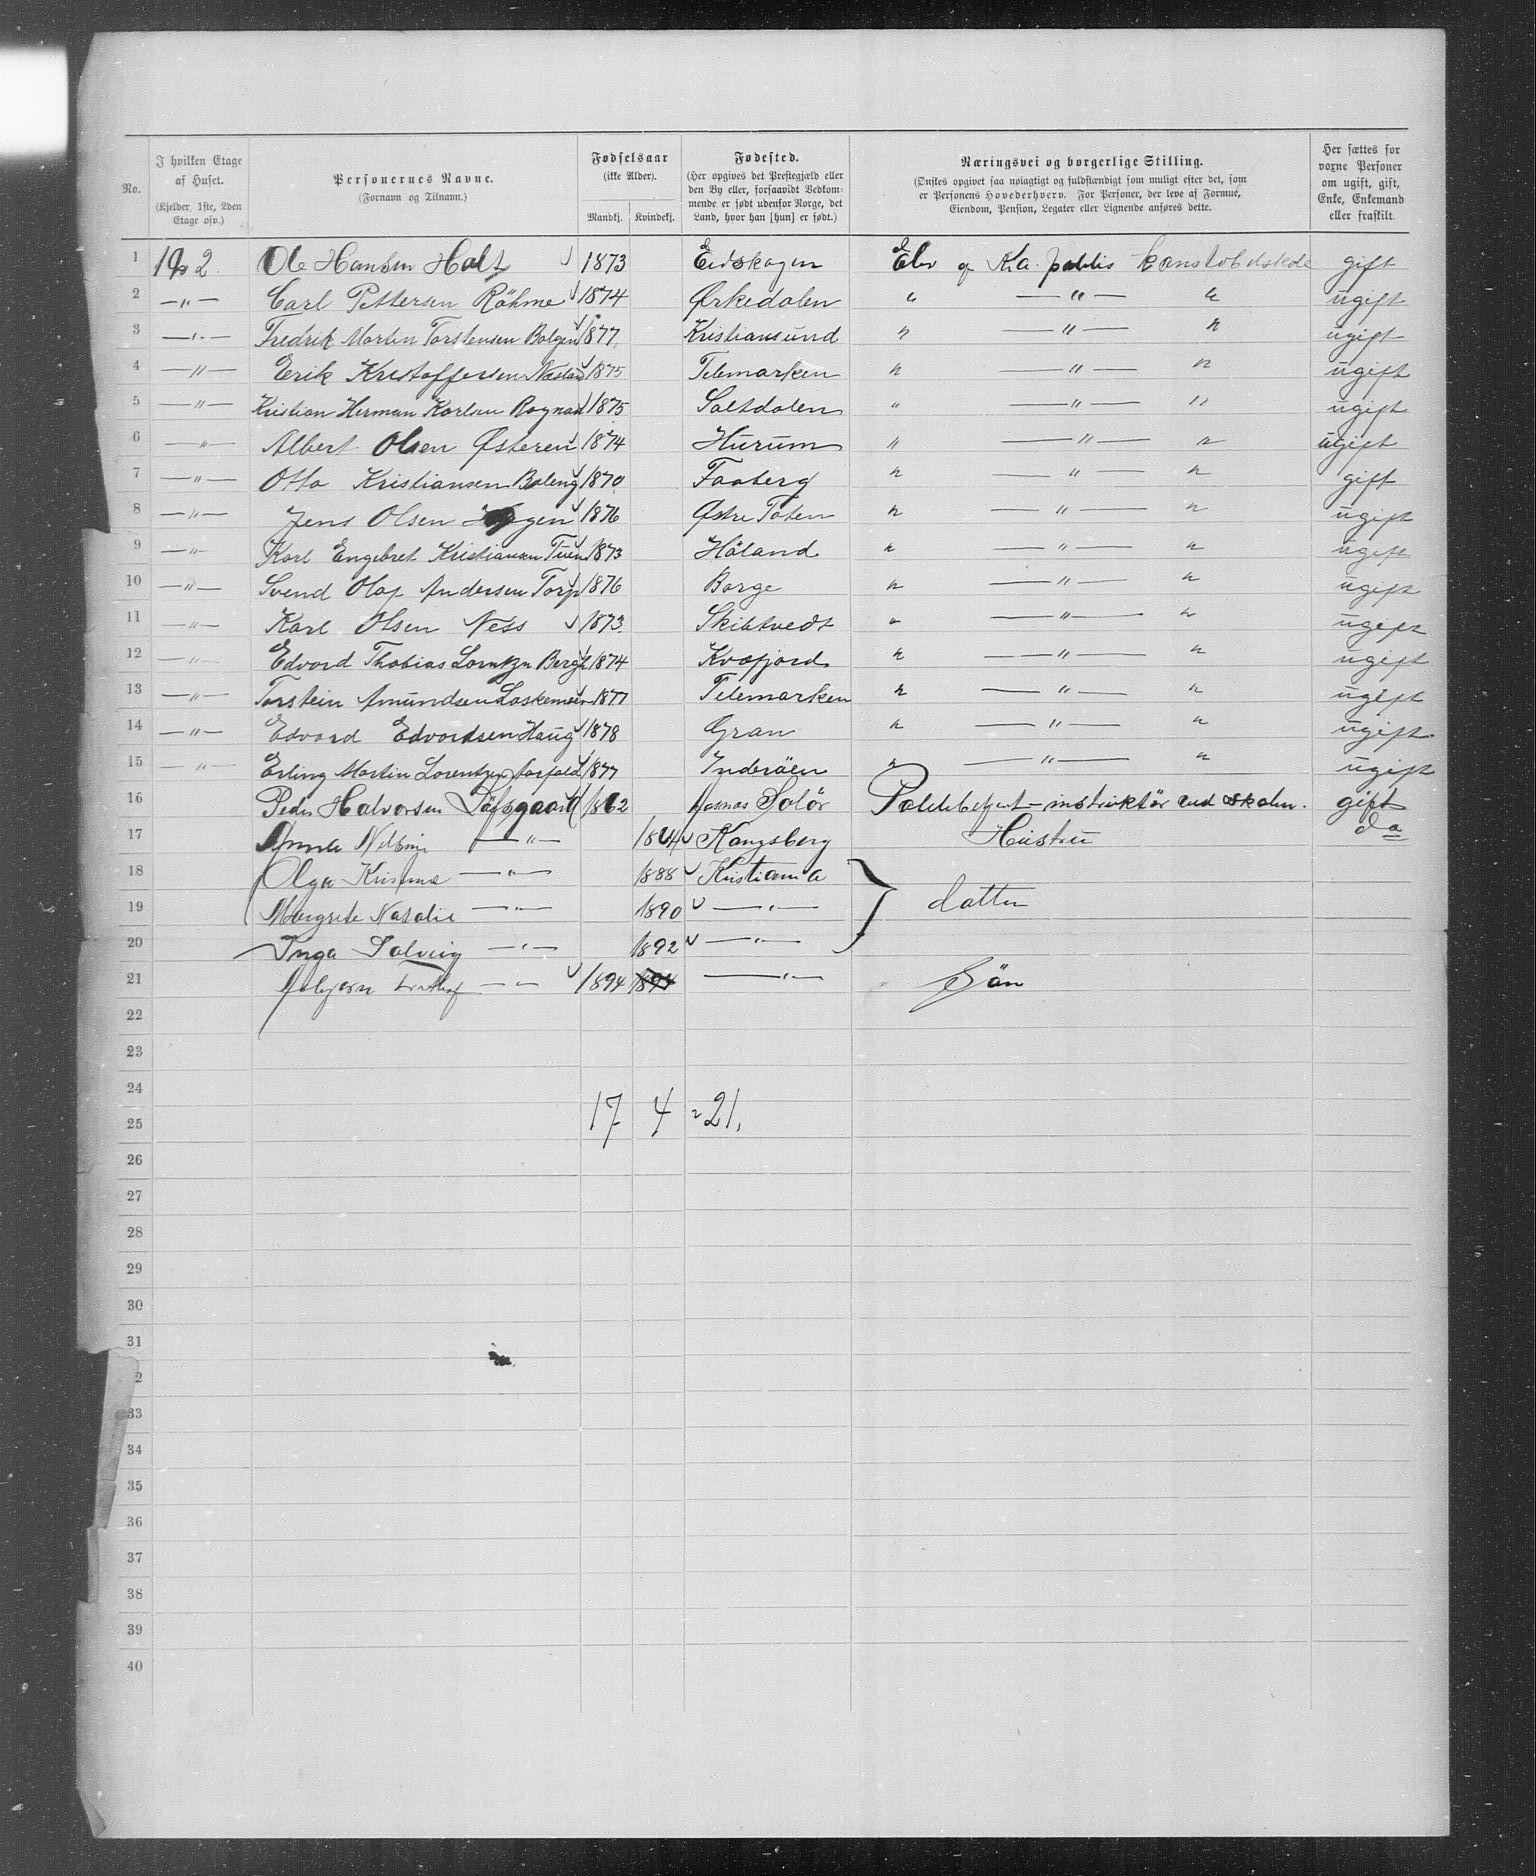 No. | I hvilken Etage af Huset. (Kjelder, 1ste, 2den Etage osv.) | Personernes Navne. (Fornavn og Tilnavn.) | Fødselsaar (ikke Alder). Mandkj. | Kvindekj. | Fødested. (Her opgives det Prestegjæld eller den By eller, forsaavidt Vedkommende er født udenfor Norge, det Land, hvor han [hun] er født.) | Næringsvei og borgerlige Stilling. (Ønskes opgivet saa nøiagtigt og fuldstændigt som muligt efter det, som er Personens Hovederhverv. For Personer, der leve af Formue, Eiendom, Pension, Legater eller Lignende anføres dette.) | Her sættes for voxne Personer om ugift, gift, Enke, Enkemand eller fraskilt.
1 2. Ole Hansen Holt 1873 Eidskogen Elev af Kra. politis gift
2 —"— Carl Pettersen Röhme 1874 Ørkedalen " —"— " ugift
3 —"— Fredrik Martin Torstensen Bolgen 1877. Kristiansund " —"— " ugift
4 —"— Erik Kristoffersen 1875 Telemarken " —"— " ugift
5 —"— Kristian Herman Karlsen Rognan 1875 Saltdalen " —"— " ugift
6 —"— Albert Olsen Østeren 1874 Hurum " —"— " ugift
7 —"— Otto Kristiansen Baleng 1870 Faaberg " —"— " gift
8 —"— Jens Olsen 1876 Østre Toten " —"— " ugift
9 —"— Karl Engebret Kristiansen 1873 Höland " —"— " ugift
10 —"— Svend Olaf Andersen Torp 1876 Borge " —"— " ugift
11 —"— Karl Olsen Ness 1873. Skibtvedt " —"— " ugift
12 —"— Edvard Thobias Lorntzn Bergh 1874 Kvæfjord " —"— " ugift
13 —"— Torstein Amundsen 1877 Telemarken " —"— " ugift
14 —"— Edvard Edvardsen Haug 1878 Gran " —"— " ugift
15 —"— Erling Martin Lorentzen 1877 Inderöen " —"— " ugift
16 Peder Halvorsen Löfsgaard 1862 Aasnæs Solör Politibetjent - instruktör ved skolen. gift
17 Nilsine —"— 1864 Kongsberg Hustru do
18 Olga Kristine —"— 1888 Kristiania
19 Margrete Natalie —"— 1890 —"— } datter
20 Inga Solveig —"— 1892 —"—
21 Asbjørn —"— 1894 1894 —"— Sön
22
23
24
25 17 4 = 21.
26
27
28
29
30
31
2
33
34
35
36
37
38
39
40